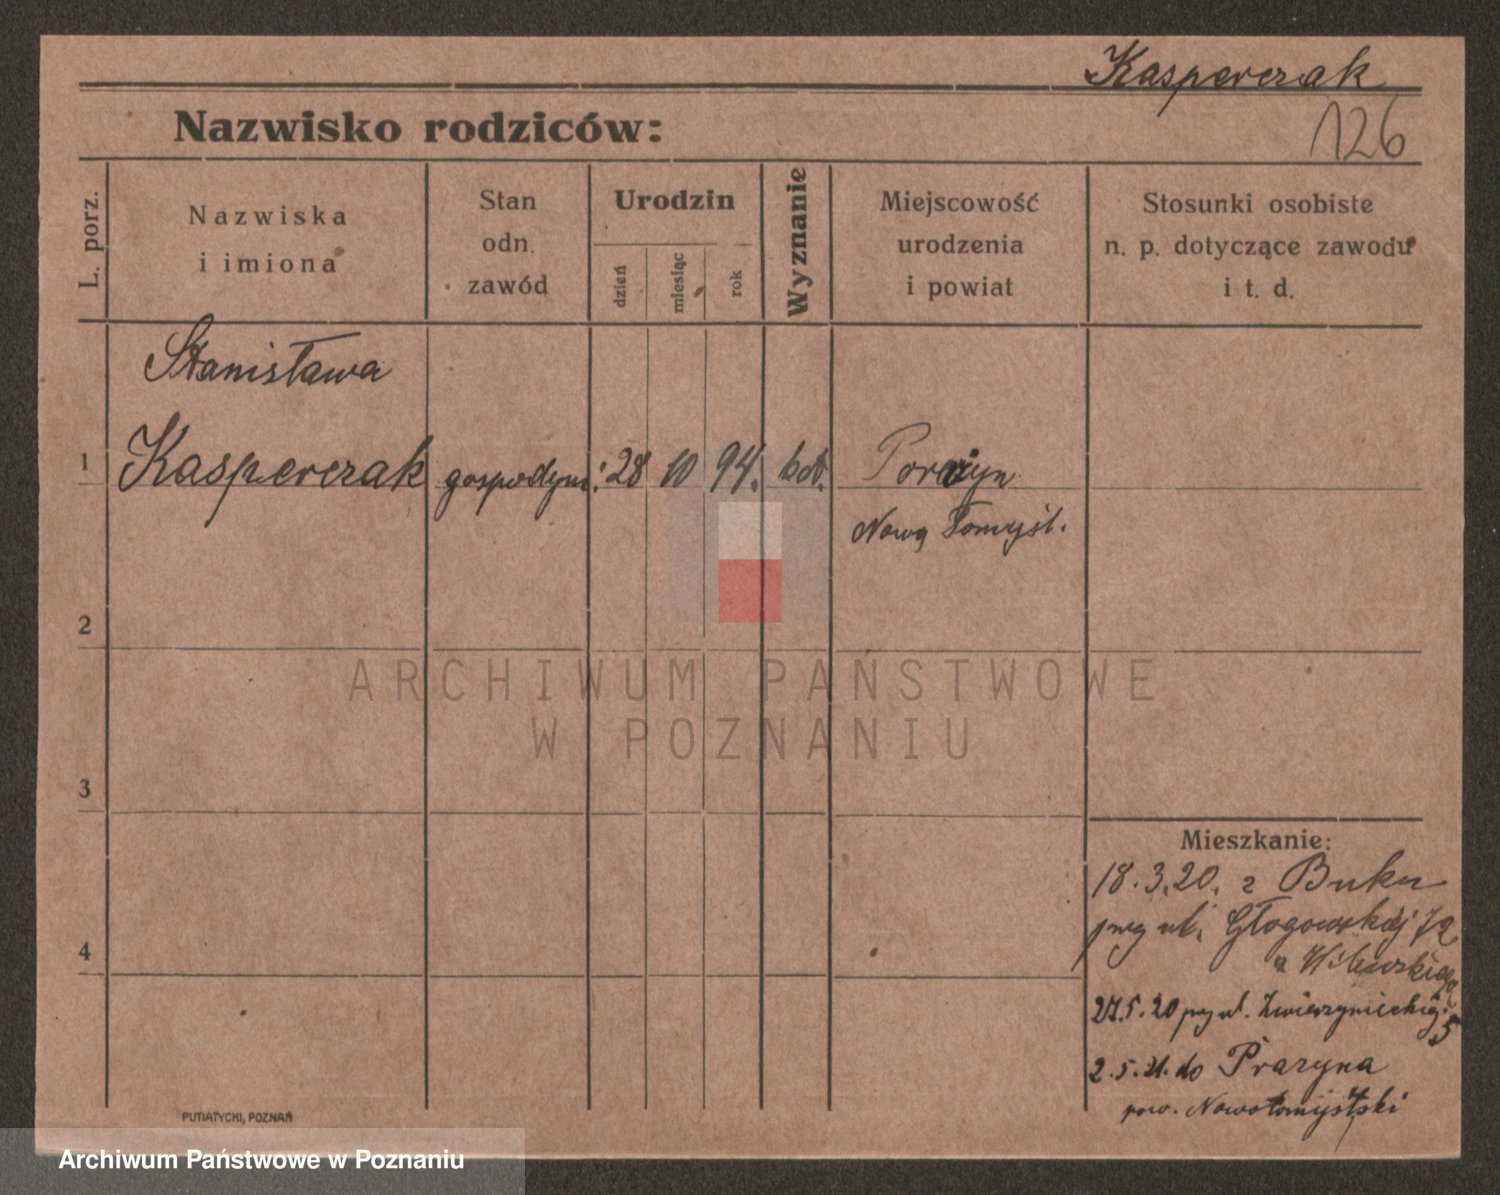 Kasperczak
Nazwisko rodziców:
126
L. porz.
Nazwiska
i imiona
Stan
odn.
zawód
Urodzin
dzień
miesiąc
rok
Wyznanie
Miejscowość
urodzenia
i powiat
Stosunki osobiste
n. p. dotyczące zawodu
i t. d.
Stanisława
1 Kasperczak gospodyni 28 10 94. kat. Porażyn
Nowy Tomyśl.
2
ARCHIWUM PAŃSTWOWE
W POZNANIU
3
Mieszkanie:
18.3.20. z Buku
przy ul. Głogowskiej 72
u
4
27.5.20 przy ul. Zwierzynieckiej
5
2.5.21. do Prazyna
pow. Nowotomyślski
PUTIATYCKI, POZNAŃ
Archiwum Państwowe w Poznaniu